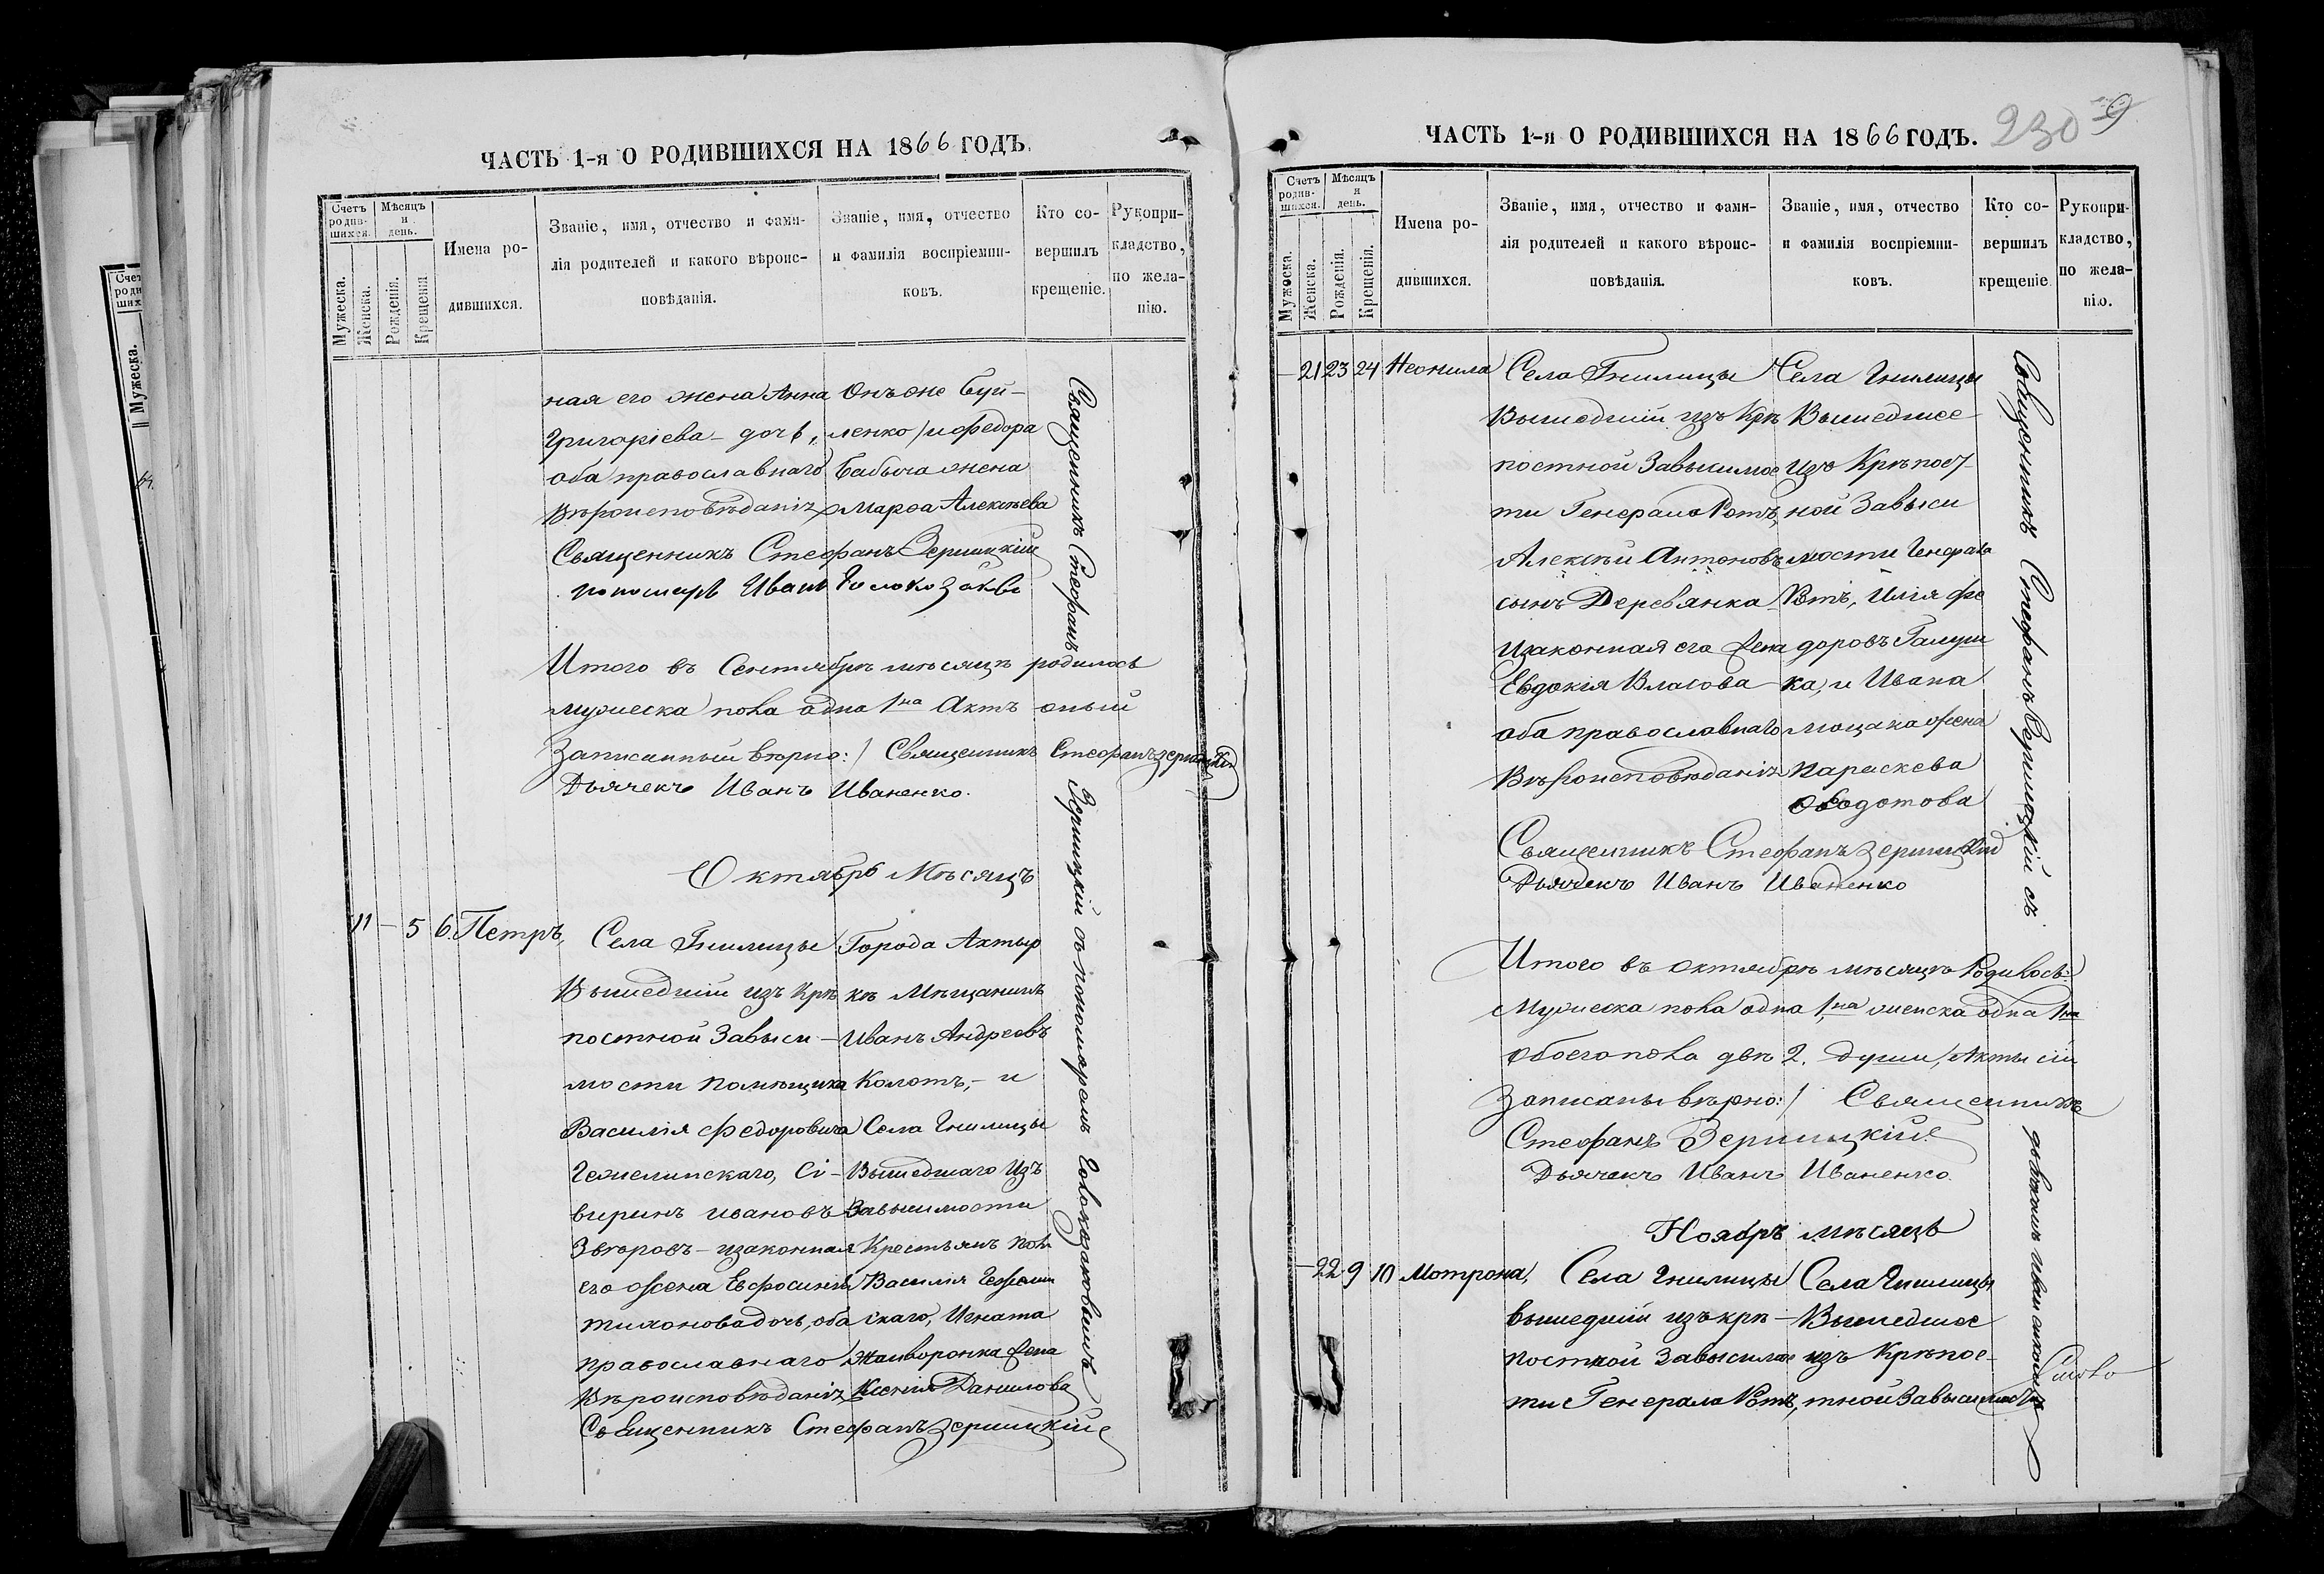 ЧАСТЬ 1-я О РОДИВШИХСЯ НА 1866 ГОДЪ.
Счетъ родив-шихся.
Мѣсяцъ и день.
Мужеска.
Женска.
Рожденія.
Крещенія
Имена ро-дившихся.
Званіе, имя, отчество и фами-
лія родителей и какого вѣроис-
повѣданія.
Званіе, имя, отчество
и фамилія воспріемни-
ковъ.
Кто со-
вершилъ
крещеніе.
Рукопри-
кладство,
по жела-
нію.
ная его жена Анна
Григоріева - дочь,
оба православнаго
Вѣроисповѣданія
Онъ же Буй-
ленко / и Федора
Бабыча жена
Марѳа Алексѣева
Священникъ Стефанъ Зермицкій
пономарь Иванъ
Итого въ Сентябрѣ мѣсяцѣ родилось
мужеска пола одна 1на Актъ оный
Записанный вѣрно:/ Священникъ Стефанъ Зермицкій
Дьячекъ Иванъ Иваненко.
Октябрь Мѣсяцъ
11 - 5 6 Петръ,
Села Гнилицы
Вышедшій изъ Крѣ
постной Завыси -
мости Помѣщика
Василія Федоровича
Ві-
виринъ Ивановъ
изаконная
его жена Евфросинія
Тихонова дочь, оба
православнаго
Вѣроисповѣданія
Города Ахтыр
ки Мѣщанинъ
Иванъ Андреевъ
Колотъ, - и
Села Гнилицы
Вышедшаго Изъ
Завысимости
Крестьянъ Пом
Василія
скаго, Игната
Жаворонка жена
Ксенія Данилова
Священникъ Стефанъ Зермицкій
Священникъ Стефанъ
Зермицкій съ пономаремъ
ЧАСТЬ 1-я О РОДИВШИХСЯ НА 1866 ГОДЪ.
230
Счетъ родив-шихся.
Мѣсяцъ и день.
Мужеска.
Женска.
Рожденія.
Крещенія.
Имена ро-дившихся.
Званіе, имя, отчество и фами-
лія родителей и какого вѣроис-
повѣданія.
Званіе, имя, отчество
и фамилія воспріемни-
ковъ.
Кто со-
вершилъ
крещеніе
Рукопри-
кладство,
по жела-
нію.
- 21 23 24 Неонила
Села Гнилицы
Вышедшій изъ Крѣ
постной Завысимос
ти Генерала Ротъ,
Алексѣй Антоновъ
сынъ Деревянка
изаконная его жена
Евдокія Власова
оба православнаго
Вѣроисповѣданія
Села Гнилицы
Вышедшее
Изъ Крѣпост-
ной Завыси
мости Генерала
Ротъ, Илія Фе
доровъ Галуш
ка, и Ивана
жена
Параскева
Ѳеодотова
Священникъ Стефанъ Зермицкій
Дьячекъ Иванъ Иваненко
Итого въ Октябрѣ мѣсяцѣ Родилось:
Мужеска пола одна 1на женска одна 1на
обоего пола двѣ 2. души, Акты сіи
Записаны вѣрно:/ Священникъ
Стефанъ Зермицкій
Дьячекъ Иванъ Иваненко.
Ноябрь мѣсяцъ
- 22 9 10 Мотрона,
Села Гнилицы
вышедшій изъ крѣ -
постной Завысимос
ти Генерала Ротъ,
Села Гнилицы
Вышедшее
изъ Крѣпос-
тной Завысимости
Священникъ Стефанъ Зермицкій съ